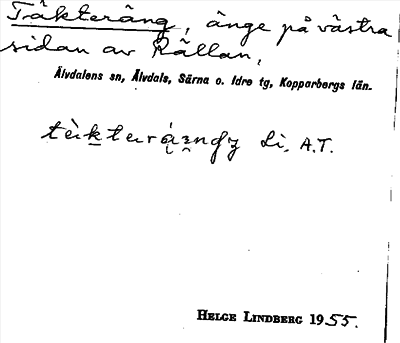 Täkteräng, änge på västra
sidan av Rällan,
Älvdalens sn, Älvdals, Särna o. Idre tg, Kopparbergs län.
Li, A.T.
HELGE LINDBERG 1955.